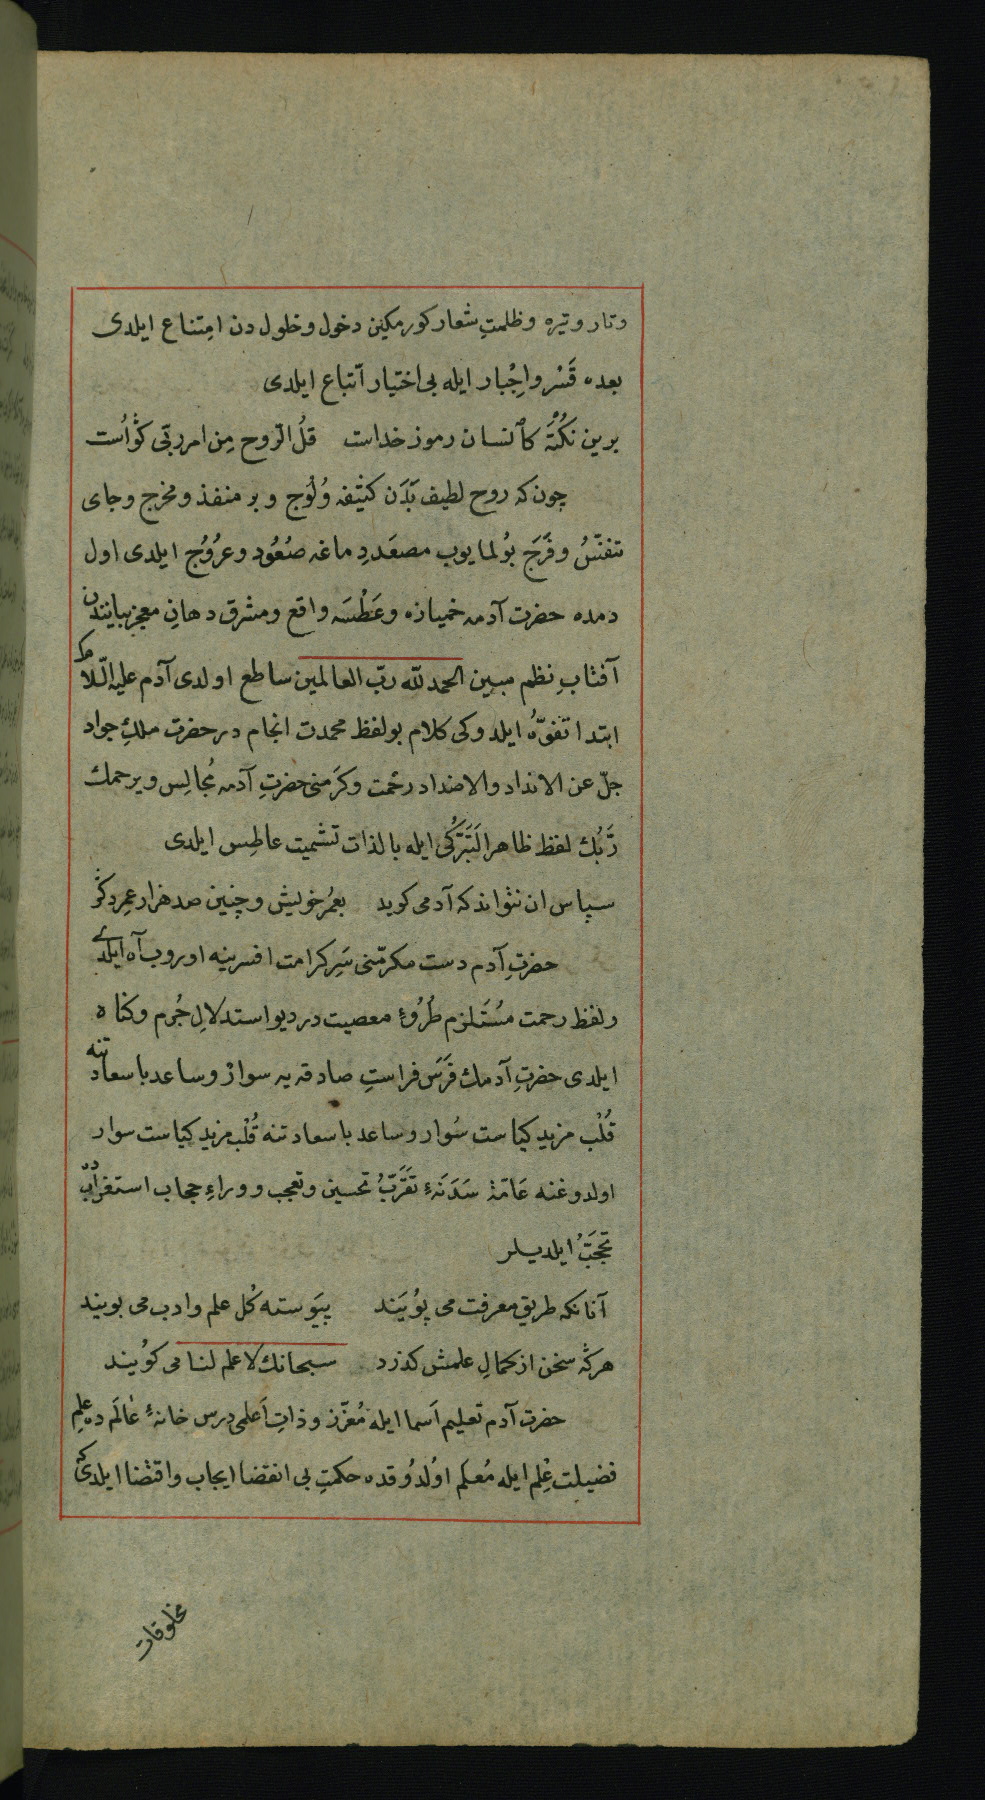 وتار وتيره وظلمتِ شعار كورمكين دخول وخلول دن امِتناع ايلدى
بعده قَسْر واِجْبار ايله بى اختيار اتّباع ايلدى
برين نكُتَه كآنسان رموز خداست قلُ الرّوح مِن امر ربّى كوُاسْت
چون كه روح لطيف بَدَن كثيفه وُلُوج و بر منفذ ومخرج وجاى
تنفّسُ وفَرَج بوُلمايوب مصعَدِ دماغه صعُوُد وعرُوُج ايلدى اول
دمده حضرت آدمه خميازه وعَطْسَه واقع ومشرق دهانِ معجز بياننْدن
آفتابِ نظم مبين الحمد لله ربّ العالمين ساطع اولدى آدم عليه السّلامك
ابتدا تفوّهُ ايلدوكى كلام بولفظ محمدت انجام در حضرت ملكِ جواد
جلّ عن الانداد والاضداد رحْمت وكرَمنى حضرتِ آدمه مُجالِس ويرحمك
رَبُّك لفظ ظاهر التَبَرّكى ايله بالذات تشميت عاطِس ايلدى
سپاس ان نتواند كه آدمى كويد بعمُر خويش وچنين صد هزار عمِر دكر
حضرتِ آدم دست مكرمّنى سَرِ كرامت افسرينه اوروب آه ايلدى
ولفظ رحمت مسُتَلزم طُرُوءِ معصيت در ديو استدلالِ جُرم وكناه
ايلدى حضرتِ آدمك فَرَس فراستِ صادقه يه سوار وساعد باسعادتنه
قُلْب مزيد كياست سُوار وساعد باسعادتنه قُلْب مزيد كياست سوار
اولدوغنه عَامّهٔ سَدَنَهءِ تَقَرّبُ تحسين وتعجب ووراءِ حجاب استغرابدن
تحجّبُ ايلديلر
آنانكه طريقِ معرفت مى پوُيَند پيَوسته كُل علم وادب مى بويند
هركه سخن از كمالِ علمش كذرد سبحانك لا علم لنا مى كوُيند
حضرت آدم تعليم اَسما ايله مُعزّز وذاتِ اَعلمى درس خانهءِ عالَم ده علِم
فضيلت عِلم ايله مُعلَم اوُلدوُقده حكمتِ بى انقضا ايجاب واقتضا ايلدى كه
مخلوقات